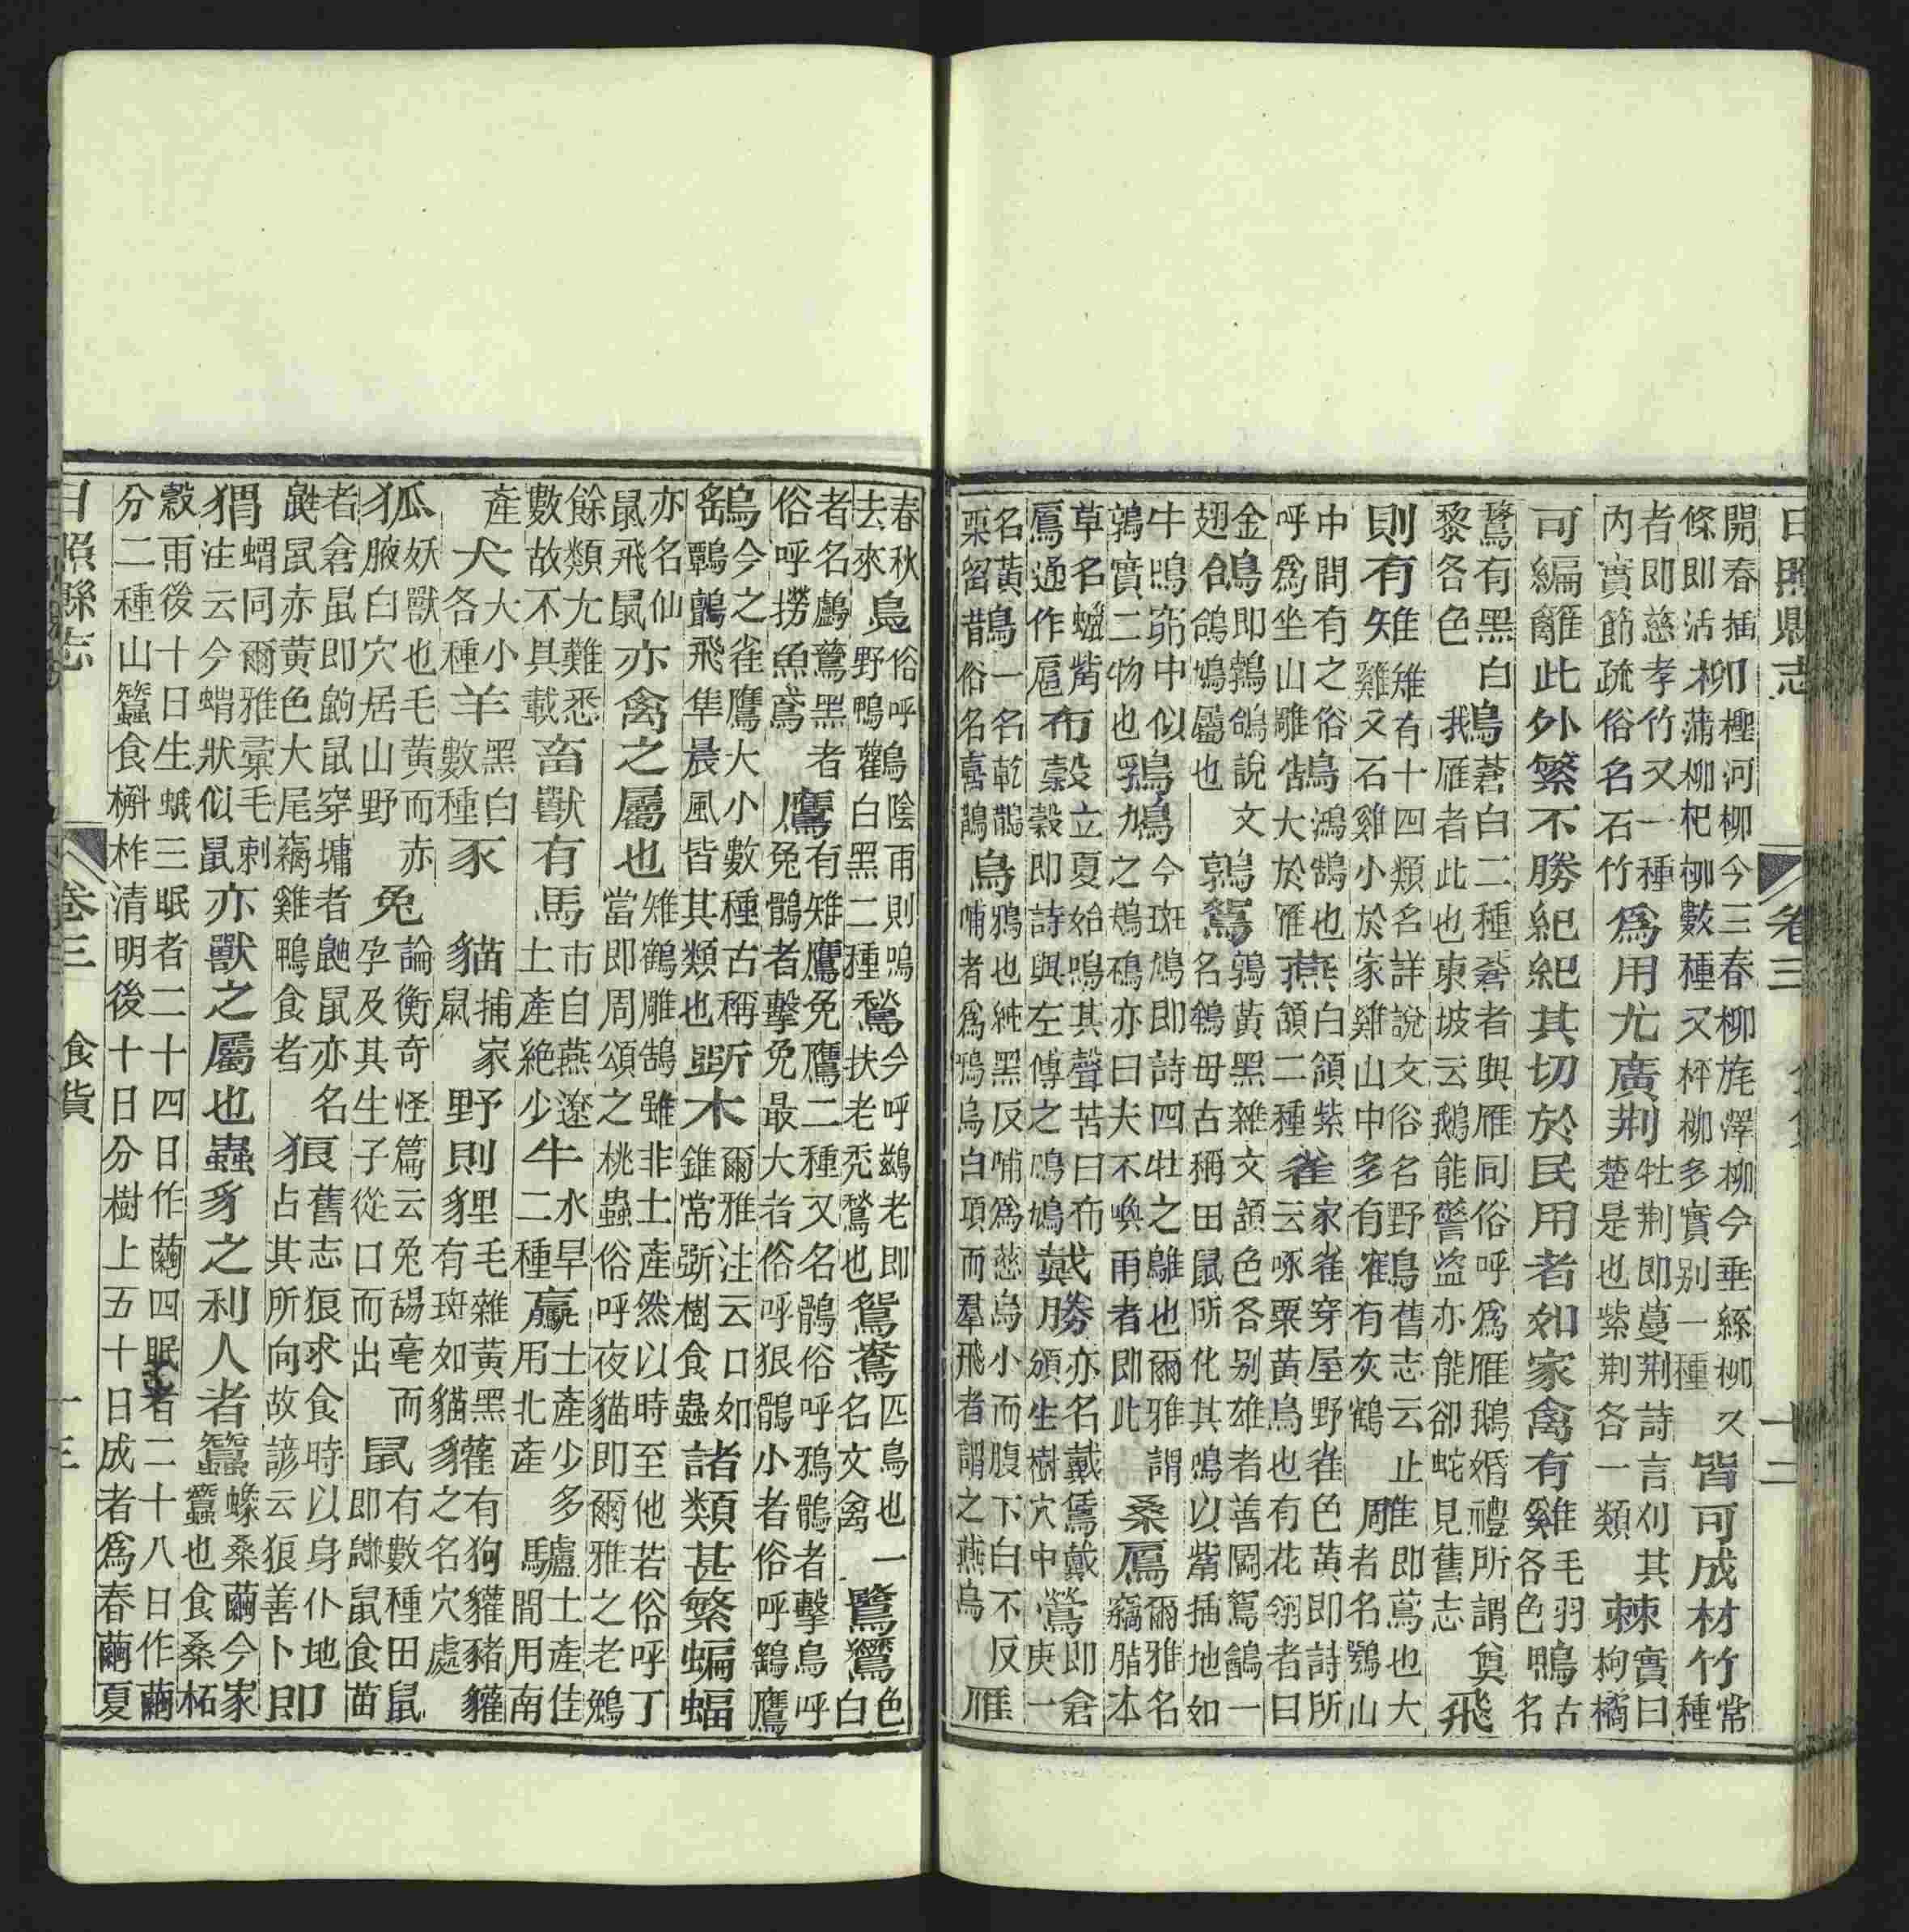 日照縣志 卷三 食貨 十二
開春插條即活柳檉河柳今三春柳旄澤柳今垂絲柳又蒲柳杞柳數種又枰柳多實别一種皆可成材竹常種
者即慈孝竹又一種內實節疏俗名石竹爲用尤廣荆牡荆即蔓荆詩言刈其楚是也紫荆各一類棘實曰枸橘
可編籬此外繁不勝紀紀其切於民用者如家禽有雞毛羽各色鴨古名
鶩有黑白黎各色鵝蒼白二種蒼者與雁同俗呼爲雁鵝婚禮所謂奠雁者此也東坡云鵝能警盜亦能卻蛇見舊志飛
則有雉雉有十四類名詳說文俗名野雞又石雞小於家雞山中多有鶴舊志云止有灰鶴雕即鳶也大者名鶚山
中間有之俗呼爲坐山雕鵠鴻鵠也大於雁燕白頷紫頷二種雀家雀穿屋野雀色黃即詩所云啄粟黃鳥也有花翎者曰
金翅鴿即鵓鴿說文鴿鳩屬也鶉鴽鶉黃黑雜文頷色各别雄者善鬭鴽一名鴾母古稱田鼠所化其鳴以觜插地如
牛鳴窌中似鶉實二物也鳲鳩今斑鳩即詩四牡之鵻也爾雅謂之鳺鴀亦曰夫不喚雨者即此桑鳸爾雅名竊脂本
草名蠟觜鳸通作扈布穀立夏始鳴其聲若曰布穀即詩與左傳之鳲鳩戴勝亦名戴鵀戴頒生樹穴中鶯即倉庚一
名黃栗留鵲一名乾鵲俗名喜鵲烏鴉也純黑反哺爲慈烏小而腹下白不反哺者爲鴉烏白項而羣飛者謂之燕烏雁
春秋去來鳧俗呼野鴨鸛陰雨則鳴白黑二種鶖今呼鷀老即扶老禿鶖也鴛鴦匹鳥也一名文禽鷺鷥色白
者名鸕鷀黑者俗呼撈魚鳶鷹有雉鷹兔鷹二種又名鶻俗呼鴉鶻者擊鳥呼兔鶻者擊兔最大者俗呼狼鶻小者俗呼鷂鷹
鷂今之雀鷹大小數種古稱鸇飛隼晨風皆其類也斲木爾雅注云口如錐常斲樹食蟲諸類甚繁蝙蝠
亦名仙鼠飛鼠亦禽之屬也雉鶴雕鵠雖非土產然以時至他若俗呼丁當即周頌之桃蟲俗呼夜貓即爾雅之老鵵
餘類尤難悉數故不具載畜獸有馬市自燕遼土產絕少牛水旱二種驘土產少多用北產驢土產佳間用南
產犬大小各種羊黑白數種豕貓捕家鼠野則貍毛雜黃黑有斑如貓貛有狗貛豬貛之名穴處
狐妖獸也毛黃而赤腋白穴居山野兔論衡奇怪篇云兔舓毫而孕及其生子從口而出鼠有數種田鼠即鼸鼠食苗
者倉鼠即鼩鼠穿墉者鼬鼠亦名鼪鼠赤黃色大尾竊雞鴨食者狼舊志狼求食時以身仆地占其所向故諺云狼善卜即
猬蝟同爾雅彙毛刺注云今蝟狀似鼠亦獸之屬也蟲豸之利人者蠶蟓桑繭今家蠶也食桑柘
穀雨後十日生蛾三眠者二十四日作繭四眠者二十八日作繭分二種山蠶食槲柞清明後十日分樹上五十日成者爲春繭夏
日照縣志 卷三 食貨 十三